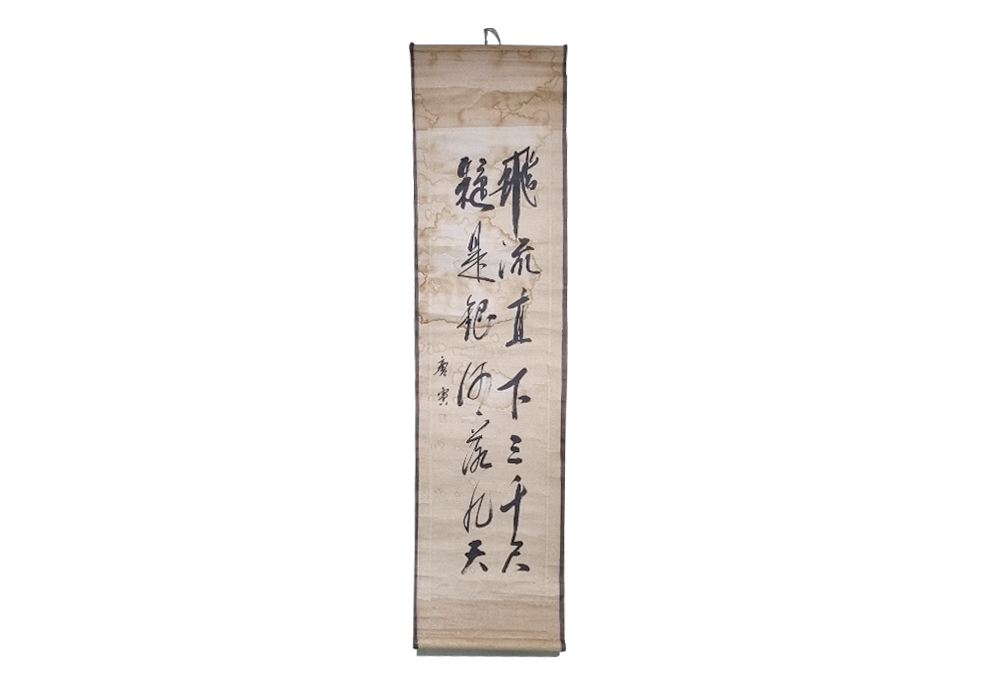 飛流直下三千尺
疑是銀河落九天
唐寅